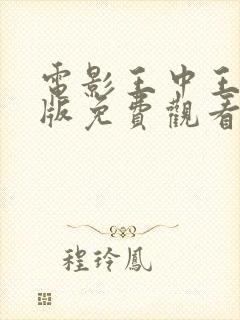 電影王中王
版免費觀看
程玲鳳